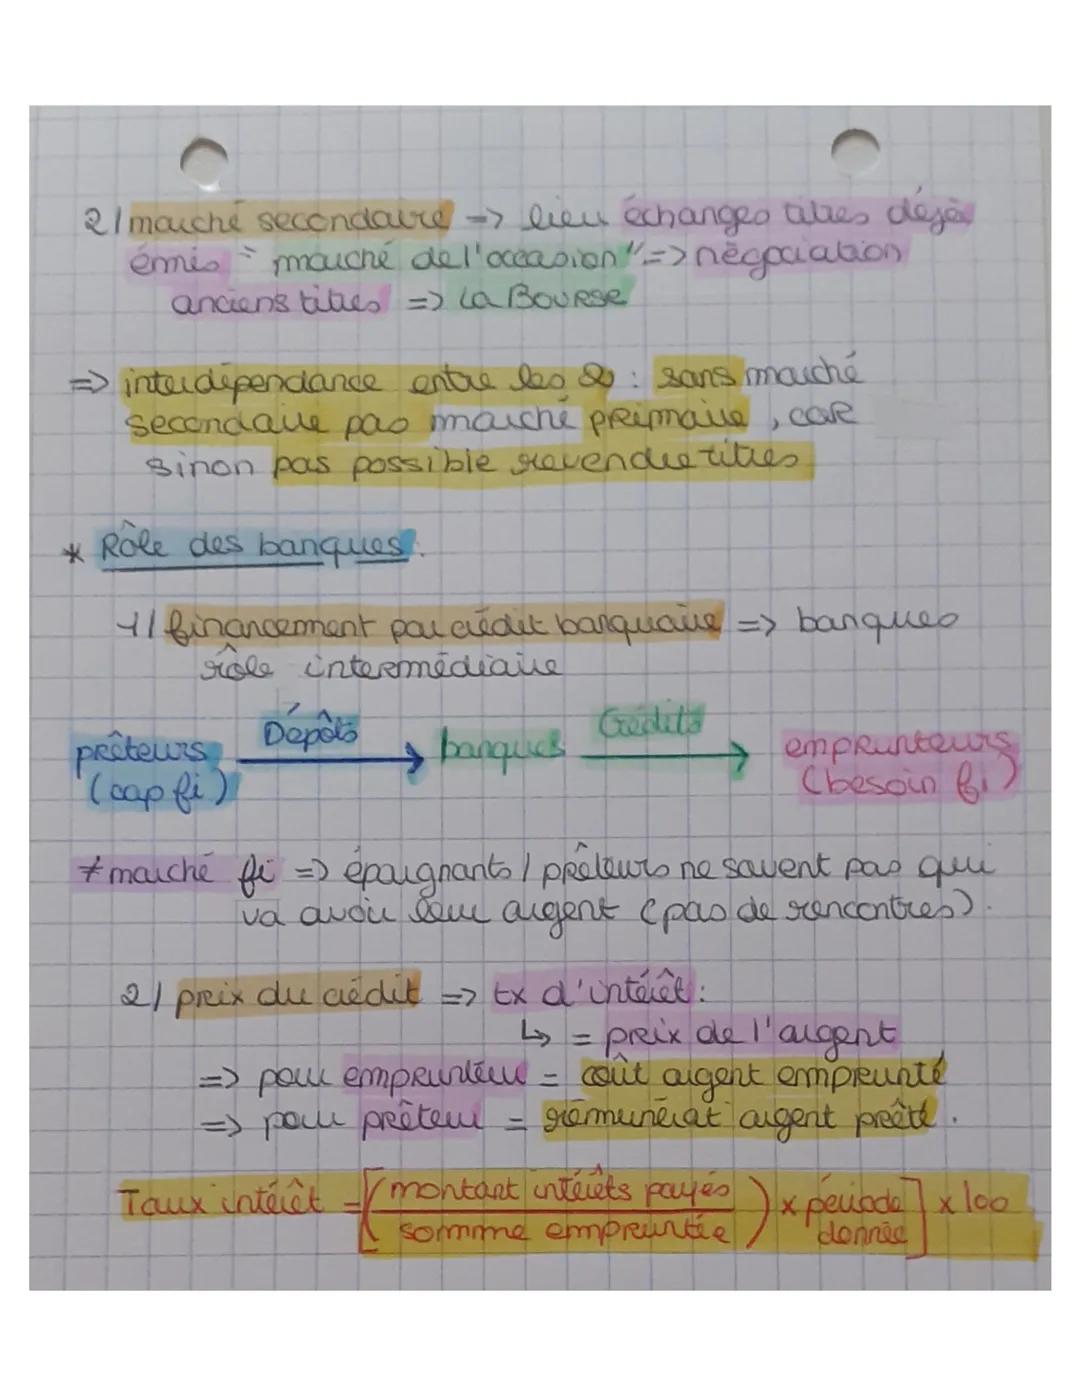 2/ marché secondaire => lieu échanges titres déjà
émis = "marché de l'occasion" => négociation
anciens titres => La Bourse
=> interdépendance entre les 2 : sans marché
secondaire pas marché primaire, car
sinon pas possible revendre titres
* Rôle des banques :
1/ financement par crédit banquaire => banques
rôle intermédiaire
prêteurs (cap fi) Dépôts → banques Crédits → emprunteurs (besoin fi)
≠ marché fi => épargnants / prêteurs ne savent pas qui
va avoir leur argent (pas de rencontres).
2/ prix du crédit => tx d'intérêt :
↳ = prix de l'argent
=> pour emprunteur = coût argent emprunté
=> pour prêteur = rémunérat° argent prêté.
Taux intérêt = [(montant intérêts payés / somme empruntée) x période donnée] x 100